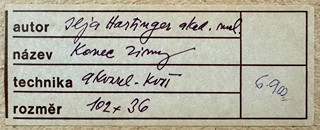 autor Ilja Hartinger akad. mal.
název Konec zimy
technika akvarel - kvaš
rozměr 102 x 36
6.900